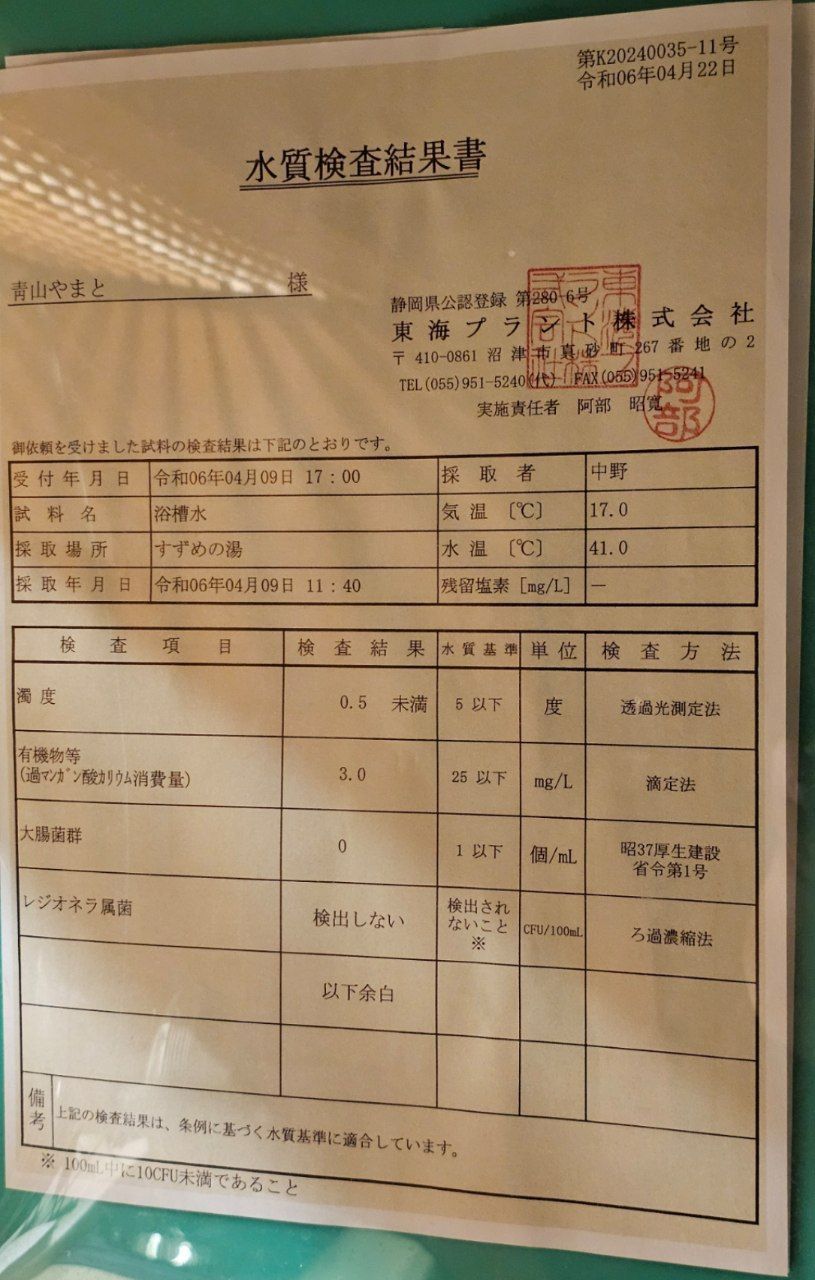 第K20240035-11号
令和06年04月22日
水質検査結果書
青山やまと 様
静岡県公認登録 第280-6号
東海プラント株式会社
〒410-0861 沼津市真砂町267番地の2
TEL(055)951-5240(代) FAX(055)951-5241
実施責任者 阿部 昭寛
阿部
御依頼を受けました試料の検査結果は下記のとおりです。
受付年月日 令和06年04月09日 17：00 採取者 中野
試料名 浴槽水 気温〔℃〕 17.0
採取場所 すずめの湯 水温〔℃〕 41.0
採取年月日 令和06年04月09日 11：40 残留塩素［mg/L］ －
検査項目 検査結果 水質基準 単位 検査方法
濁度 0.5 未満 5 以下 度 透過光測定法
有機物等
(過ﾏﾝｶﾞﾝ酸ｶﾘｳﾑ消費量) 3.0 25 以下 mg/L 滴定法
大腸菌群 0 1 以下 個/mL 昭37厚生建設
省令第1号
レジオネラ属菌 検出しない 検出され
ないこと
※ CFU/100mL ろ過濃縮法
以下余白
備考 上記の検査結果は、条例に基づく水質基準に適合しています。
※ 100mL中に10CFU未満であること